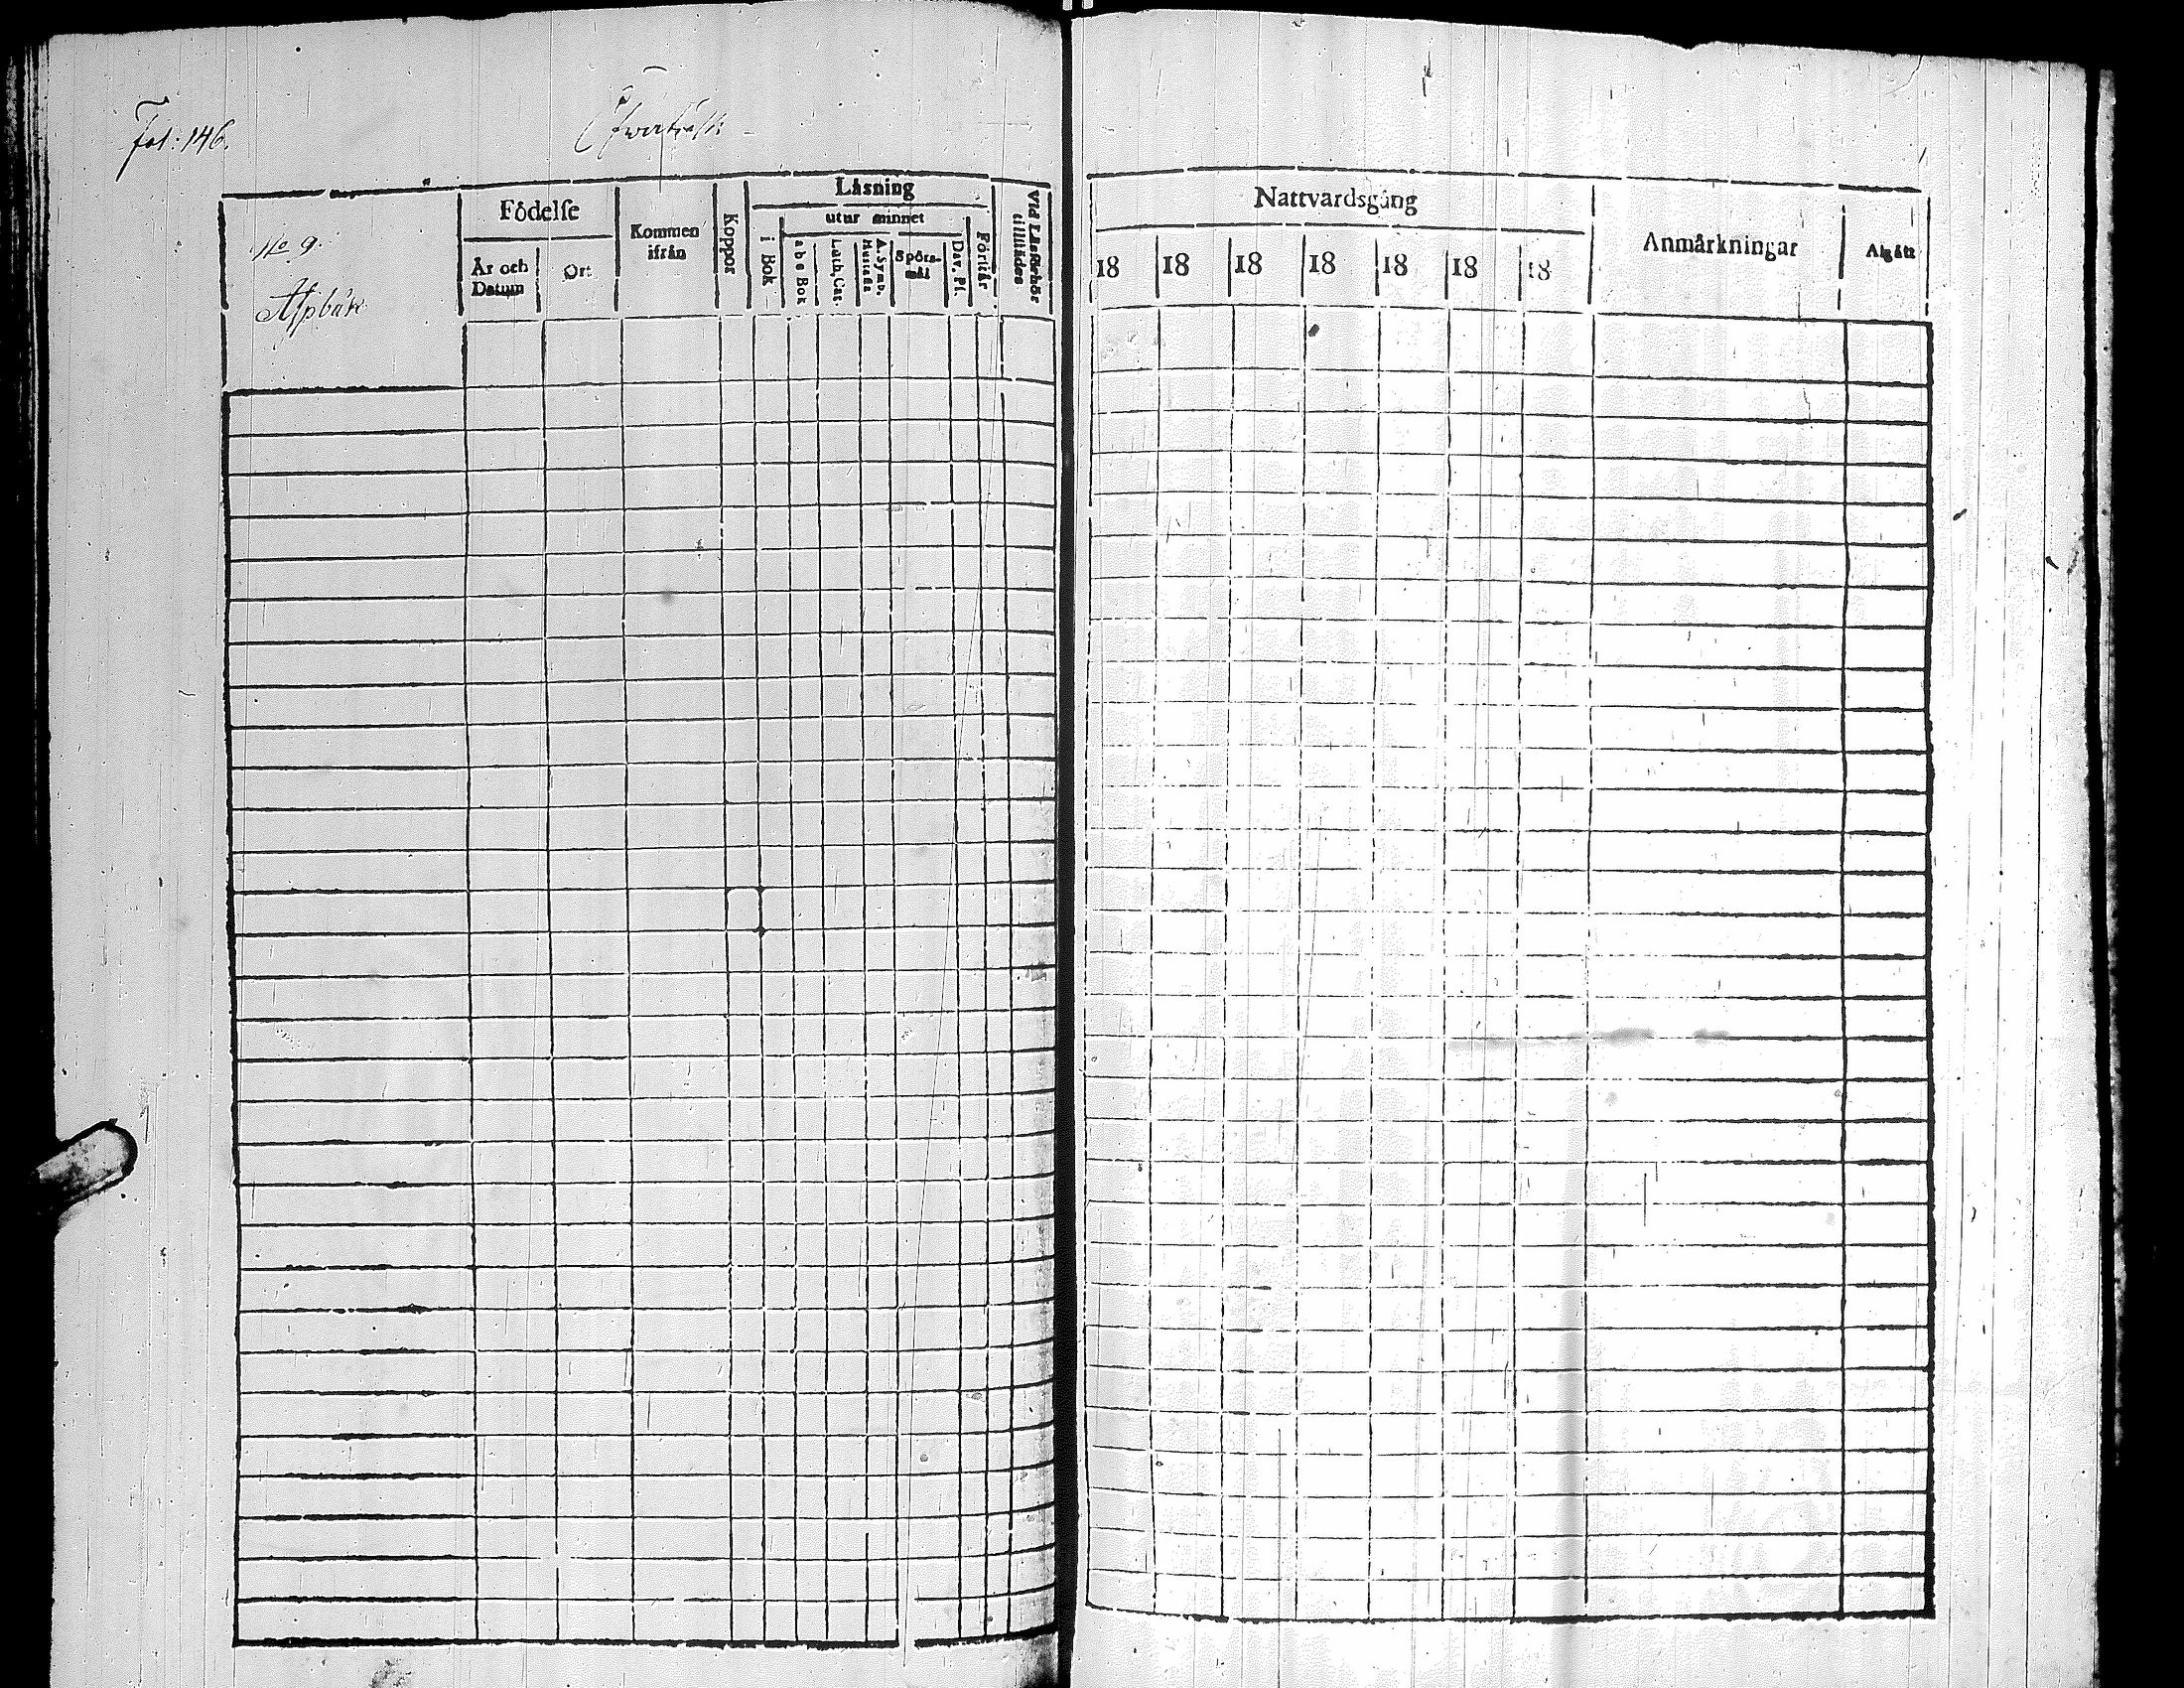 Fol: 146.
No 9.
Aspbäk
Födelse
År och
Datum
Ort
Kommen
ifrån
Koppor
Läsning
i Bok
utur minnet
a b c Bok
Luth. Cat.
A. Symb.
Hustafla
Spörs-
mål
Dav. Ps.
Förstår
Vid Läsförhör
tillstädes
Nattvardsgång
18 18 18 18 18 18 18
Anmårkningar
Afgått